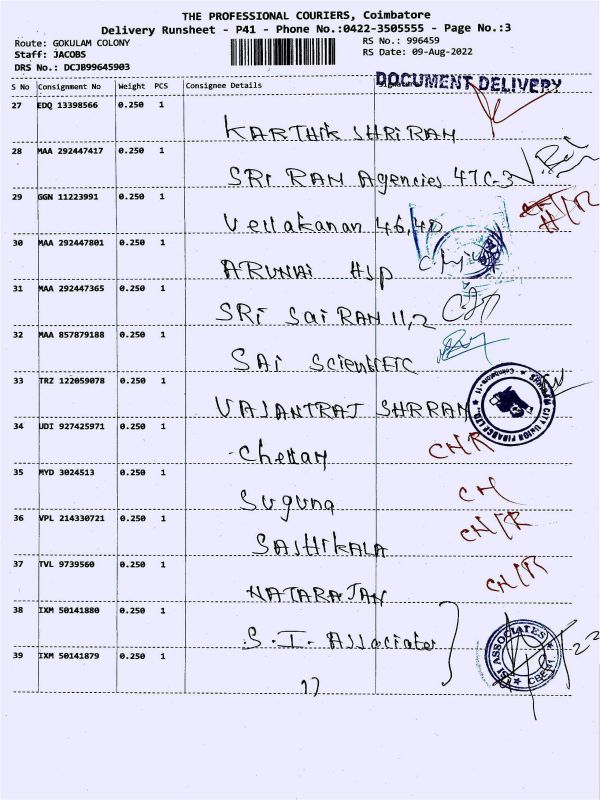 THE PROFESSIONAL COURIERS, Coimbatore
Delivery Runsheet - P41 - Phone No.:0422-3505555 - Page No.:3
Route: GOKULAM COLONY RS No.: 996459
Staff: JACOBS RS Date: 09-Aug-2022
DRS No.: DCJB99645903
DOCUMENT DELIVERY
S No Consignment No Weight PCS Consignee Details
27 EDQ 13398566 0.250 1
KARTHIK SHRI RAM
28 MAA 292447417 0.250 1
SRI RAM Agencies 47C-3
29 GGN 11223991 0.250 1
Vellakanan 46,4D
30 MAA 292447801 0.250 1
ARUNAI HSP
31 MAA 292447365 0.250 1
SRI Sai RAM 11,2
32 MAA 857879188 0.250 1
SAI ScientIFIC
33 TRZ 122059078 0.250 1
VAJANTRAJ SHRRAM
CITY UNION FINANCE LTD.
Coimbatore - 11
34 UDI 927425971 0.250 1
Chettam CH/R
35 MYD 3024513 0.250 1
Suguna CH
36 VPL 214330721 0.250 1
SASHIKALA CH/R
37 TVL 9739560 0.250 1
NATARAJAN CH/R
38 IXM 50141880 0.250 1
S.I. Associates
ISI ASSOCIATES
CBE-11
39 IXM 50141879 0.250 1